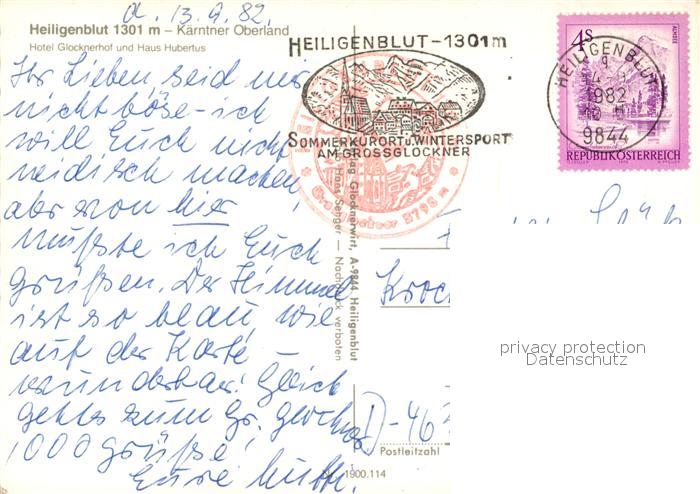 d. 13.9.82.
Heiligenblut 1301 m – Kärntner Oberland
Hotel Glocknerhof und Haus Hubertus
Ihr Lieben seid mir
nicht böse – ich
will Euch nicht
neidisch machen
aber von hier
mußte ich Euch
grüßen. Der Himmel
ist so blau, wie
auf der Karte –
wunderbar! Gleich
gehts zum Gr. Glockner
1000 Grüße!
Eure Mutti!
HEILIGENBLUT – 1301 m
SOMMERKURORT u. WINTERSPORT
AM GROSSGLOCKNER
Grossglockner 3798 m
Glocknerwirt, A-9844 Heiligenblut
Hans Seeger — Nachdruck verboten
4 S
ALMSEE
REPUBLIK ÖSTERREICH
HEILIGENBLUT
1982
9844
Kroc
D-46
Postleitzahl
1900.114
privacy protection
Datenschutz